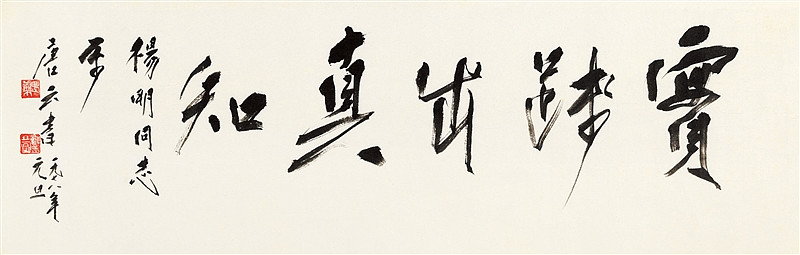 實踐出真知
楊明同志
属
唐云書
一九七八年
元旦